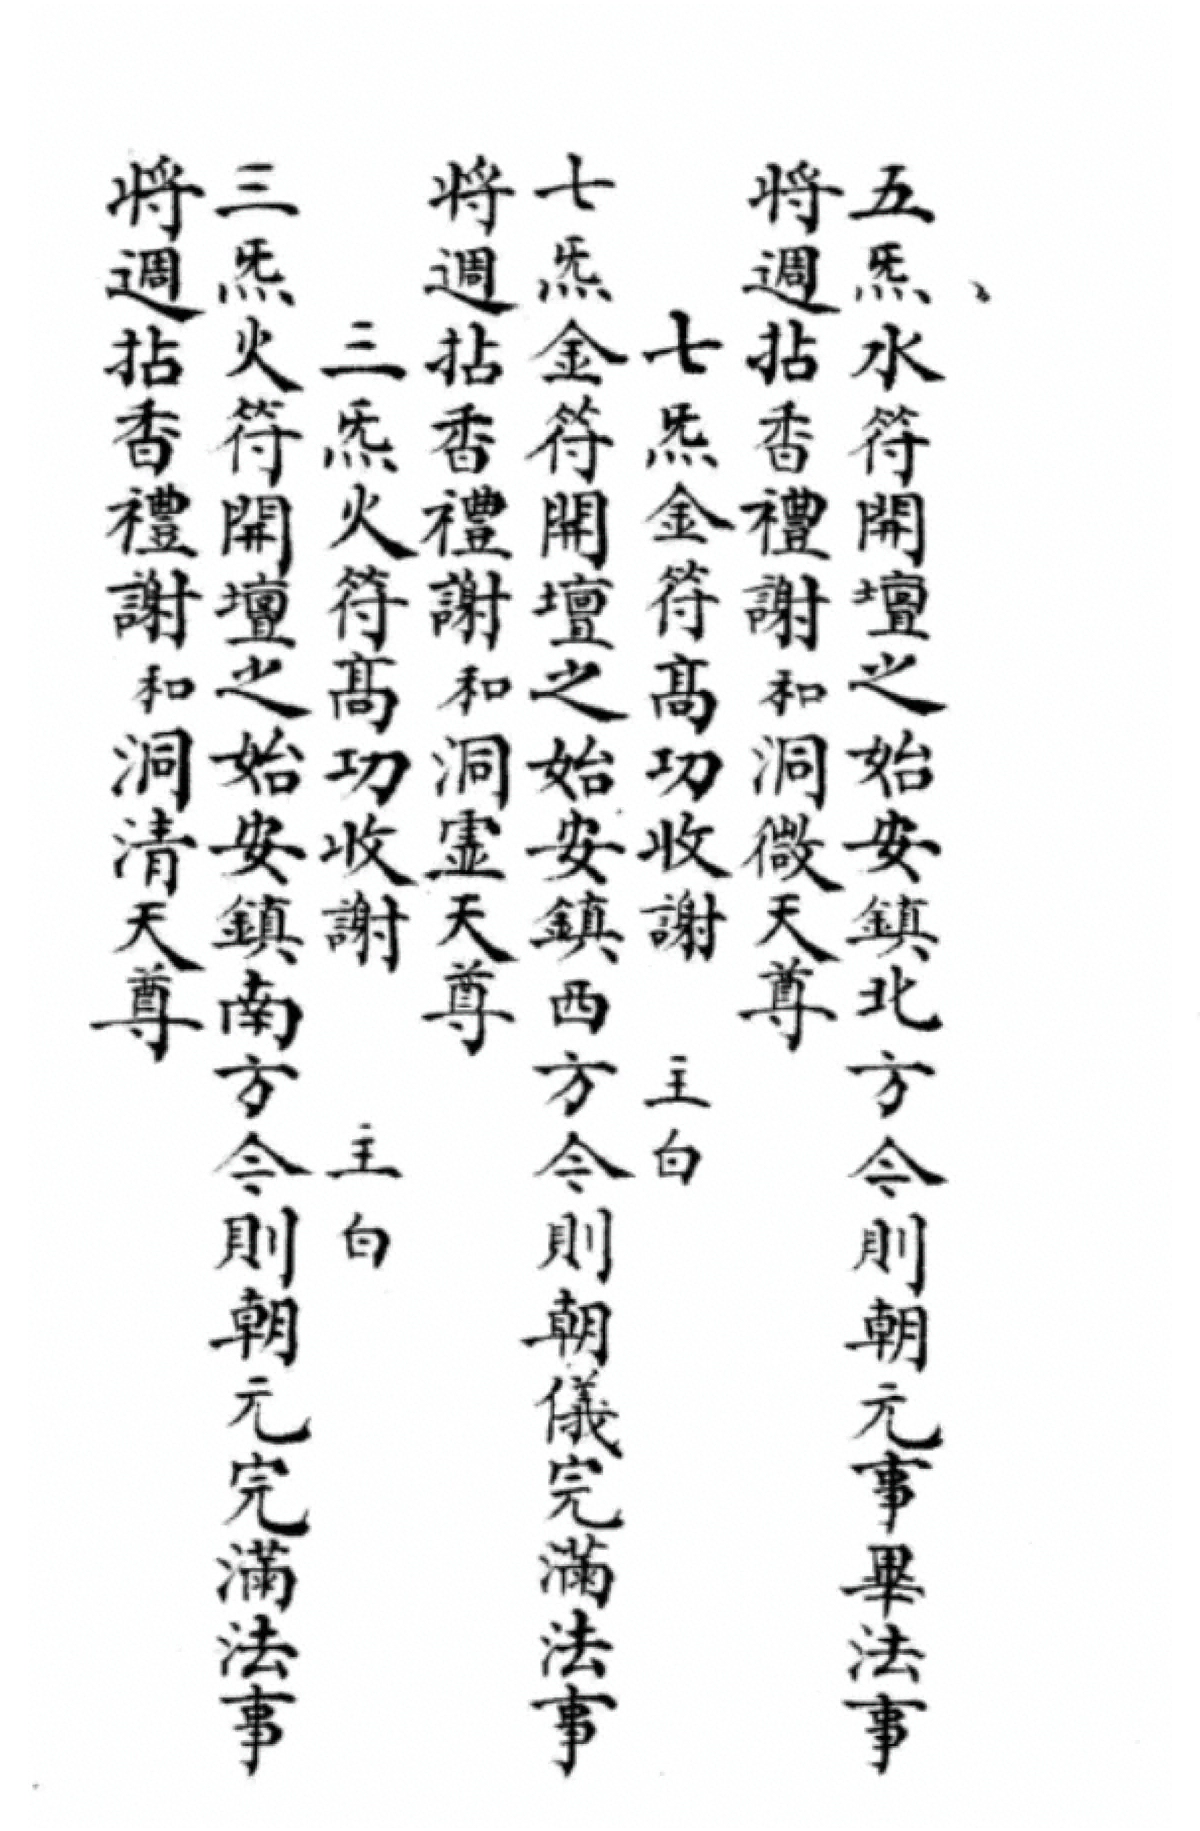 五炁水符開壇之始安鎮北方今則朝元事畢法事
將週拈香禮謝和洞微天尊
七炁金符高功收謝 主白
七炁金符開壇之始安鎮西方今則朝儀完滿法事
將週拈香禮謝和洞靈天尊
三炁火符高功收謝 主白
三炁火符開壇之始安鎮南方今則朝元完滿法事
將週拈香禮謝和洞清天尊